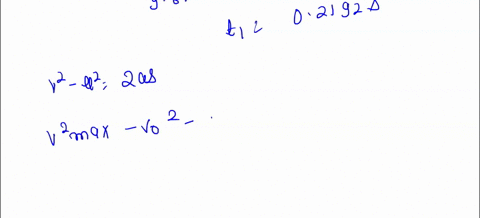 t₁ = 0.2192 s
v² - u² = 2as
v² max - v₀² -